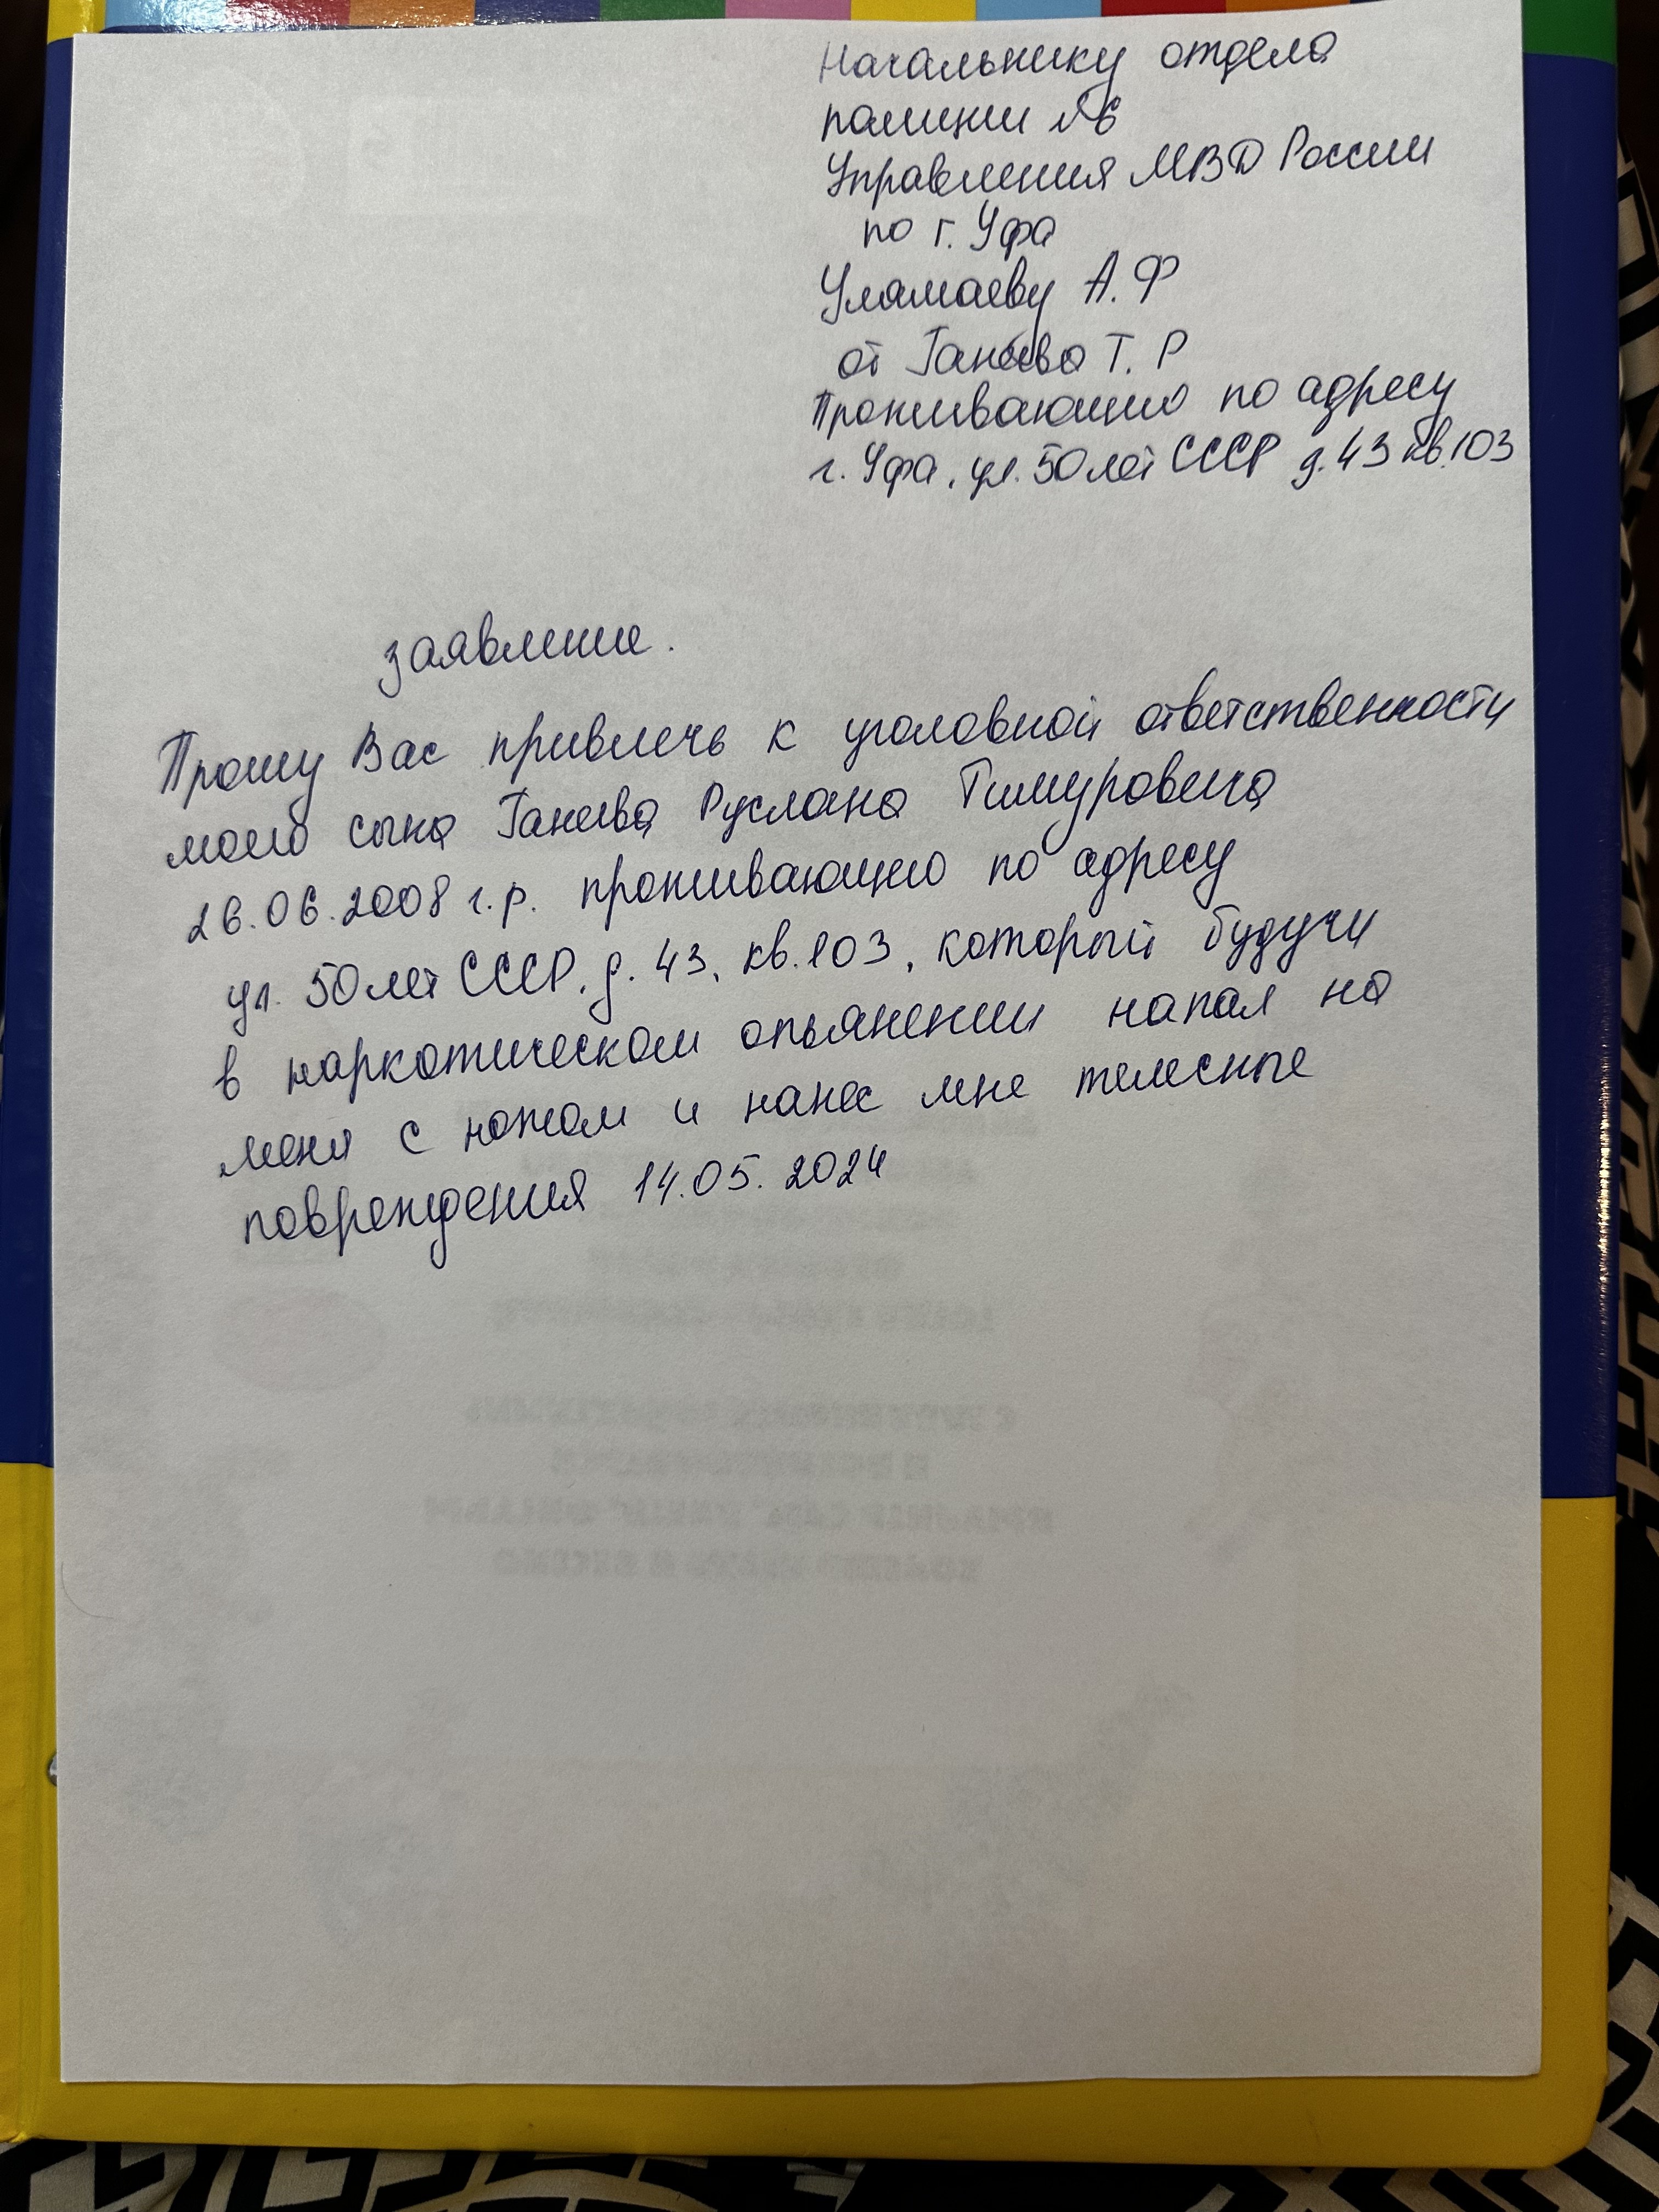 Начальнику отдела
полиции №6
Управления МВД России
по г. Уфа
Уламаеву А.Ф
от Ганеева Т. Р
Проживающего по адресу
г. Уфа, ул. 50 лет СССР д. 43 кв. 103
заявление.
Прошу Вас привлечь к уголовной ответственности
моего сына Ганеева Руслана Тимуровича
26.06.2008 г.р. проживающего по адресу
ул. 50 лет СССР, д. 43, кв. 103, который будучи
в наркотическом опьянении напал на
меня с ножом и нанес мне телесные
повреждения 14.05.2024